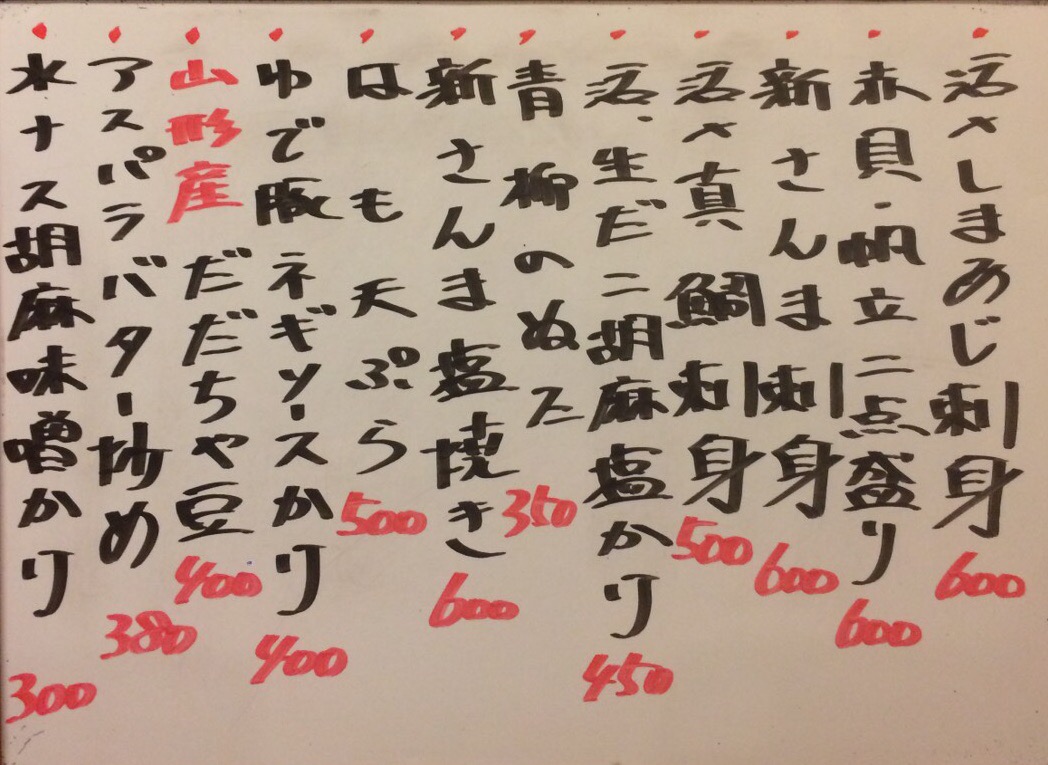 活〆しまあじ刺身 600
赤貝・帆立二点盛り 600
新さんま刺身 600
活〆真鯛刺身 500
活・生だこ胡麻塩かけ 450
青柳のぬた 350
新さんま塩焼き 600
はも天ぷら 500
ゆで豚ネギソースかけ 400
山形産だだちゃ豆 400
アスパラバター炒め 380
水ナス胡麻味噌かけ 300